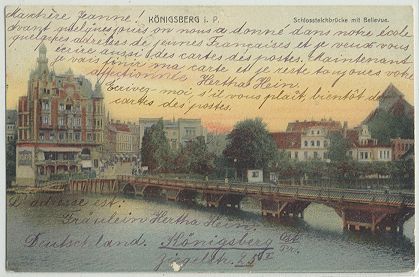 Ma chère Jeanne!
KÖNIGSBERG i. P.
Schlossteichbrücke mit Bellevue.
Avant quelques jours on nous a donné dans notre école
quelques adresses de jeunes Françaises et je veux vous
écrire aussi des cartes des postes. Maintenant
je vais finir ma carte et je reste toujours votre
affectionnée Hertha Hein.
Ecrivez-moi, s'il vous plaît, bientôt de
cartes des postes.
L'adresse est:
Fräulein Hertha Hein,
Deutschland. Königsberg